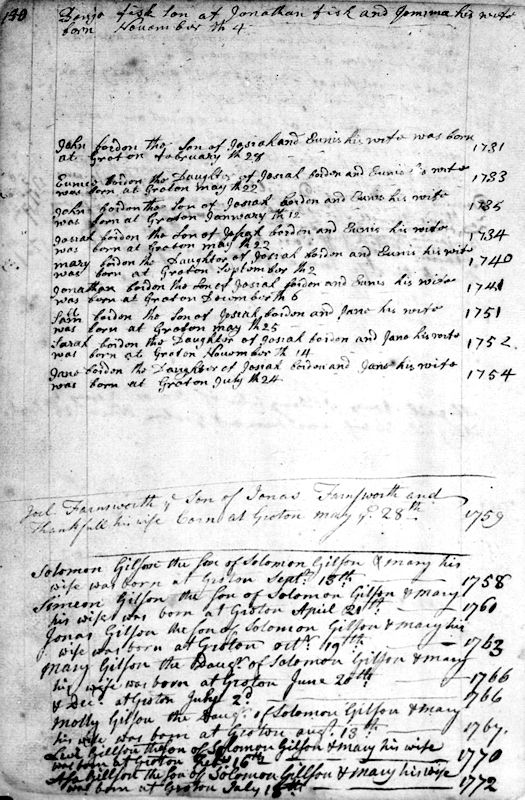 140 Benja fisk son of Jonathan fisk and Jemima his wife
born November th 4
John boidon the Son of Josiah and Eunis his wife was born
at Groton february th 28 1731
Eunice boidon the Daughter of Josiah boidon and Eunis his wife
was born at Groton may th 22 1733
John boidon the Son of Josiah boidon and Eunis his wife
was born at Groton January th 12 1735
Josiah boidon the Son of Josiah boidon and Eunis his wife
was born at Groton may th 22 1734
mary boidon the Daughter of Josiah boidon and Eunis his wife
was born at Groton September th 2 1740
Jonathan boidon the Son of Josiah boidon and Eunis his wife
was born at Groton December th 6 1741
boidon the Son of Josiah boidon and Jane his wife
was born at Groton may th 25 1751
Sarah boidon the Daughter of Josiah boidon and Jane his wife
was born at Groton November th 14 1752
Jane boidon the Daughter of Josiah boidon and Jane his wife
was born at Groton July th 24 1754
Joel Farnsworth ye Son of Jonas Farnsworth and
Thankfull his wife born at Groton may ye 28th 1759
Solomon Gilson the Son of Solomon Gilson & mary his
wife was born at Groton Septr 18th 1758
Simeon Gilson the Son of Solomon Gilson & mary
his wife was born at Groton April 21th 1761
Jonas Gilson the Son of Solomon Gilson & mary his
wife was born at Groton octr 19th 1763
Mary Gilson the Daugr of Solomon Gilson & mary
his wife was born at Groton June 20th 1766
& Dec. at Groton July 2d 1766
Molly Gilson the Daugr of Solomon Gilson & Mary
his wife was born at Groton augt 13th 1767
Levi Gillson the Son of Solomon Gilson & mary his wife
was born at Groton 16th 1770
Asa Gillson the Son of Solomon Gillson & mary his wife
was born at Groton July 1772